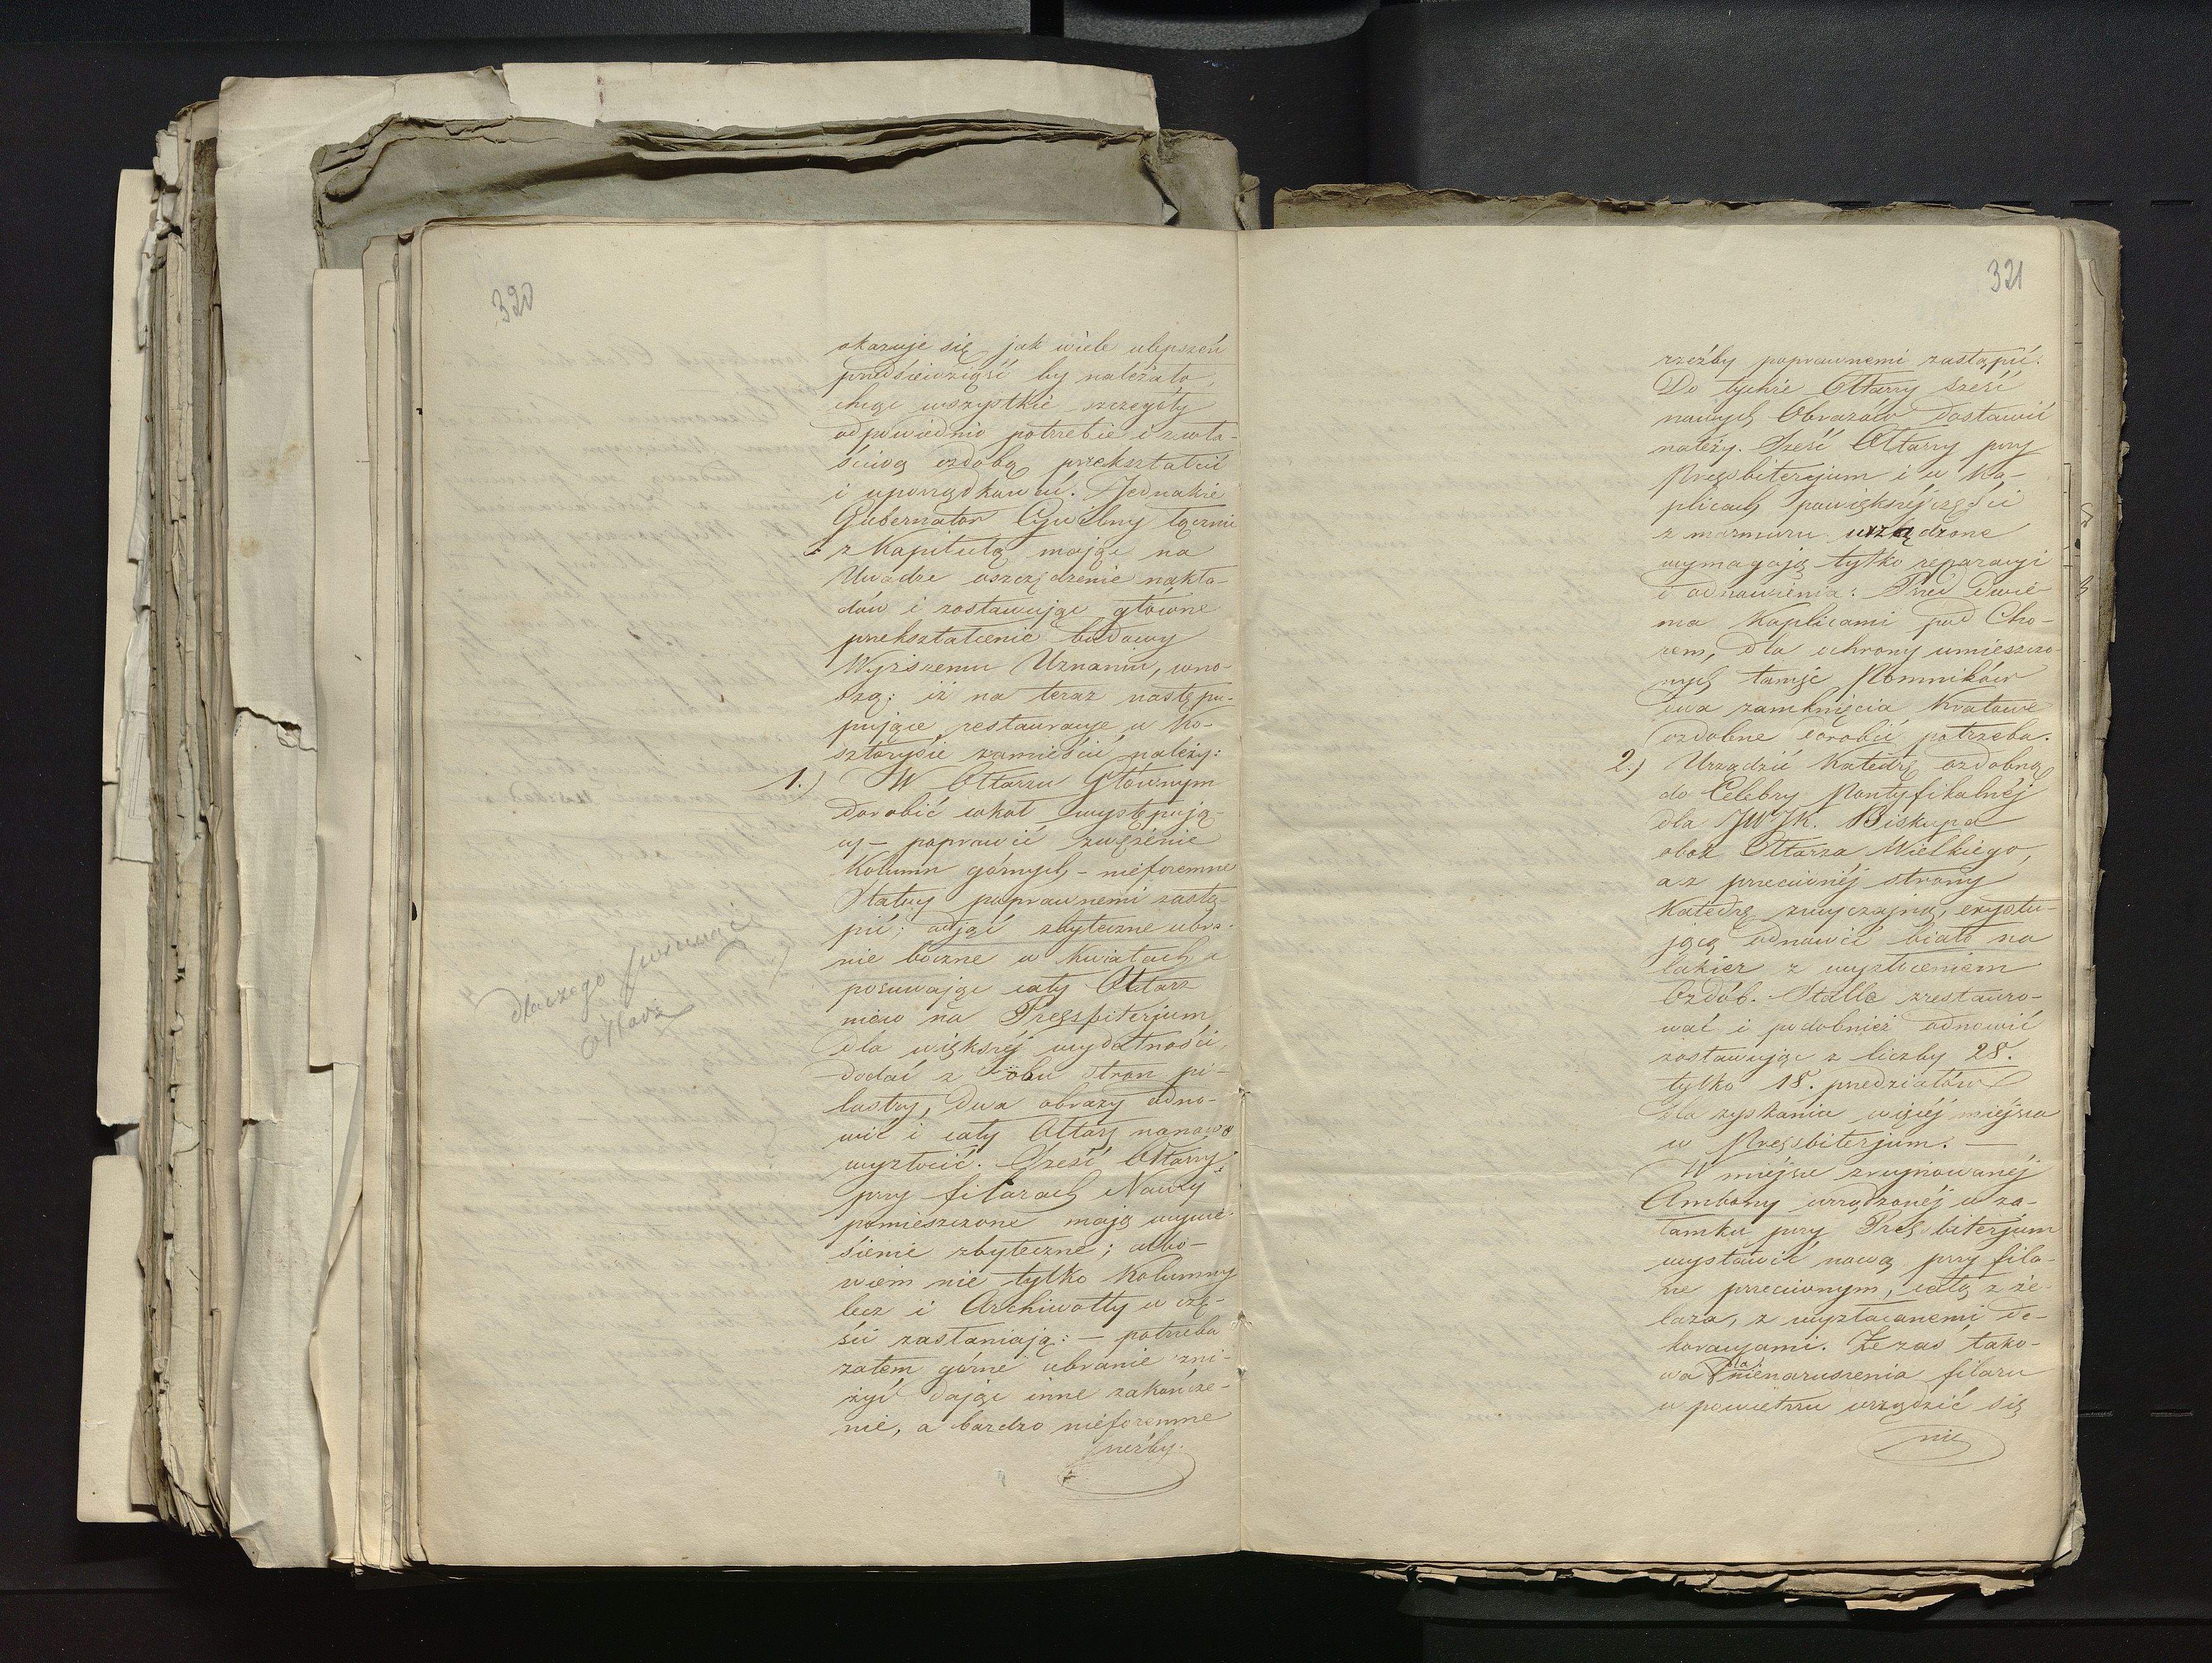 320
okazuje się jak wiele ulepszeń
przedsiewziąść by należało,
chcąc wszystkie szczegóły
odpowiednio potrzebie i zwła-
ściwą ozdobą przekształcić
i uporządkować. Jednakże
Gubernator Cywilny łącznie
z Kapitułą mając na
Uwadze oszczędzenie nakła-
dów i zostawując główne
przekształcenie budowy
Wyższemu Uznaniu, wno-
szą: iż na teraz nastę pu-
pujące restauracje w Ko-
sztorysie zamieścić należy:
1.) W Ołtarzu Głównym
dorobić cokoł występują-
cy – poprawić zwężenie
Kolumn górnych – nieforemne
Statuy poprawnemi zastą-
pić; odjąć zbyteczne ubra-
nie boczne w Kwiatach a
posuwając cały Ołtarz
nieco na Presbiterjum
dla większej wydatności,
dodać z obu stron pi-
lastry, dwa obrazy odno-
wić i cały Ołtarz nanowo
wyzłocić. Sześć Ołtarzy
przy filarach Nawy
pomieszczone mają wynie-
sienie zbyteczne; albo-
wiem nie tylko Kolumny
lecz i Archiwolty w czę-
ści zasłaniają: – potrzeba
zatem górne ubranie zni-
żyć dając inne zakończe-
nie, a bardzo nieforemne
rzeźby.
dlaczego
ołtarz
321
rzeźby poprawnemi zastąpić.
Do tychże Ołtarzy sześć
nowych Obrazów dostawić
należy. Sześć Ołtarzy przy
Presbiterjum i w Ka-
plicach powiększej części
z marmuru urządzone
wymagają tylko reparacyi
i odnowienia: Przed Dwie-
ma Kaplicami pod Cho-
rem, dla ochrony umieszczo-
nych tamże Pomników
dwa zamknięcia Kratowe
ozdobne dorobić potrzeba.
2.) Urządzić Katedrę ozdobną
do Celebry Pontyfikalnéj
dla JW JX. Biskupa
obok Ołtarza Wielkiego,
a z przeciwnéj strony
Katedrę zwyczajną, exystu-
jącą odnowić biało na
lakier z wyzłoceniem
Ozdób. Stalle zrestauro-
wać i podobnież odnowić
zostawując z liczby 28.
tylko 18. przedziałów
dla zyskania więcéj miejsca
w Presbiterjum. —
W miejsce zrujnowanéj
Ambony urządzonéj w za-
łamku przy Presbiterjum
wystawić nową przy fila-
rze przeciwnym, całą z że-
laza, z wyzłacanemi de-
koracyami. Że zaś tako-
wa dla nienaruszenia filaru
w powietrzu urządzić się
nie